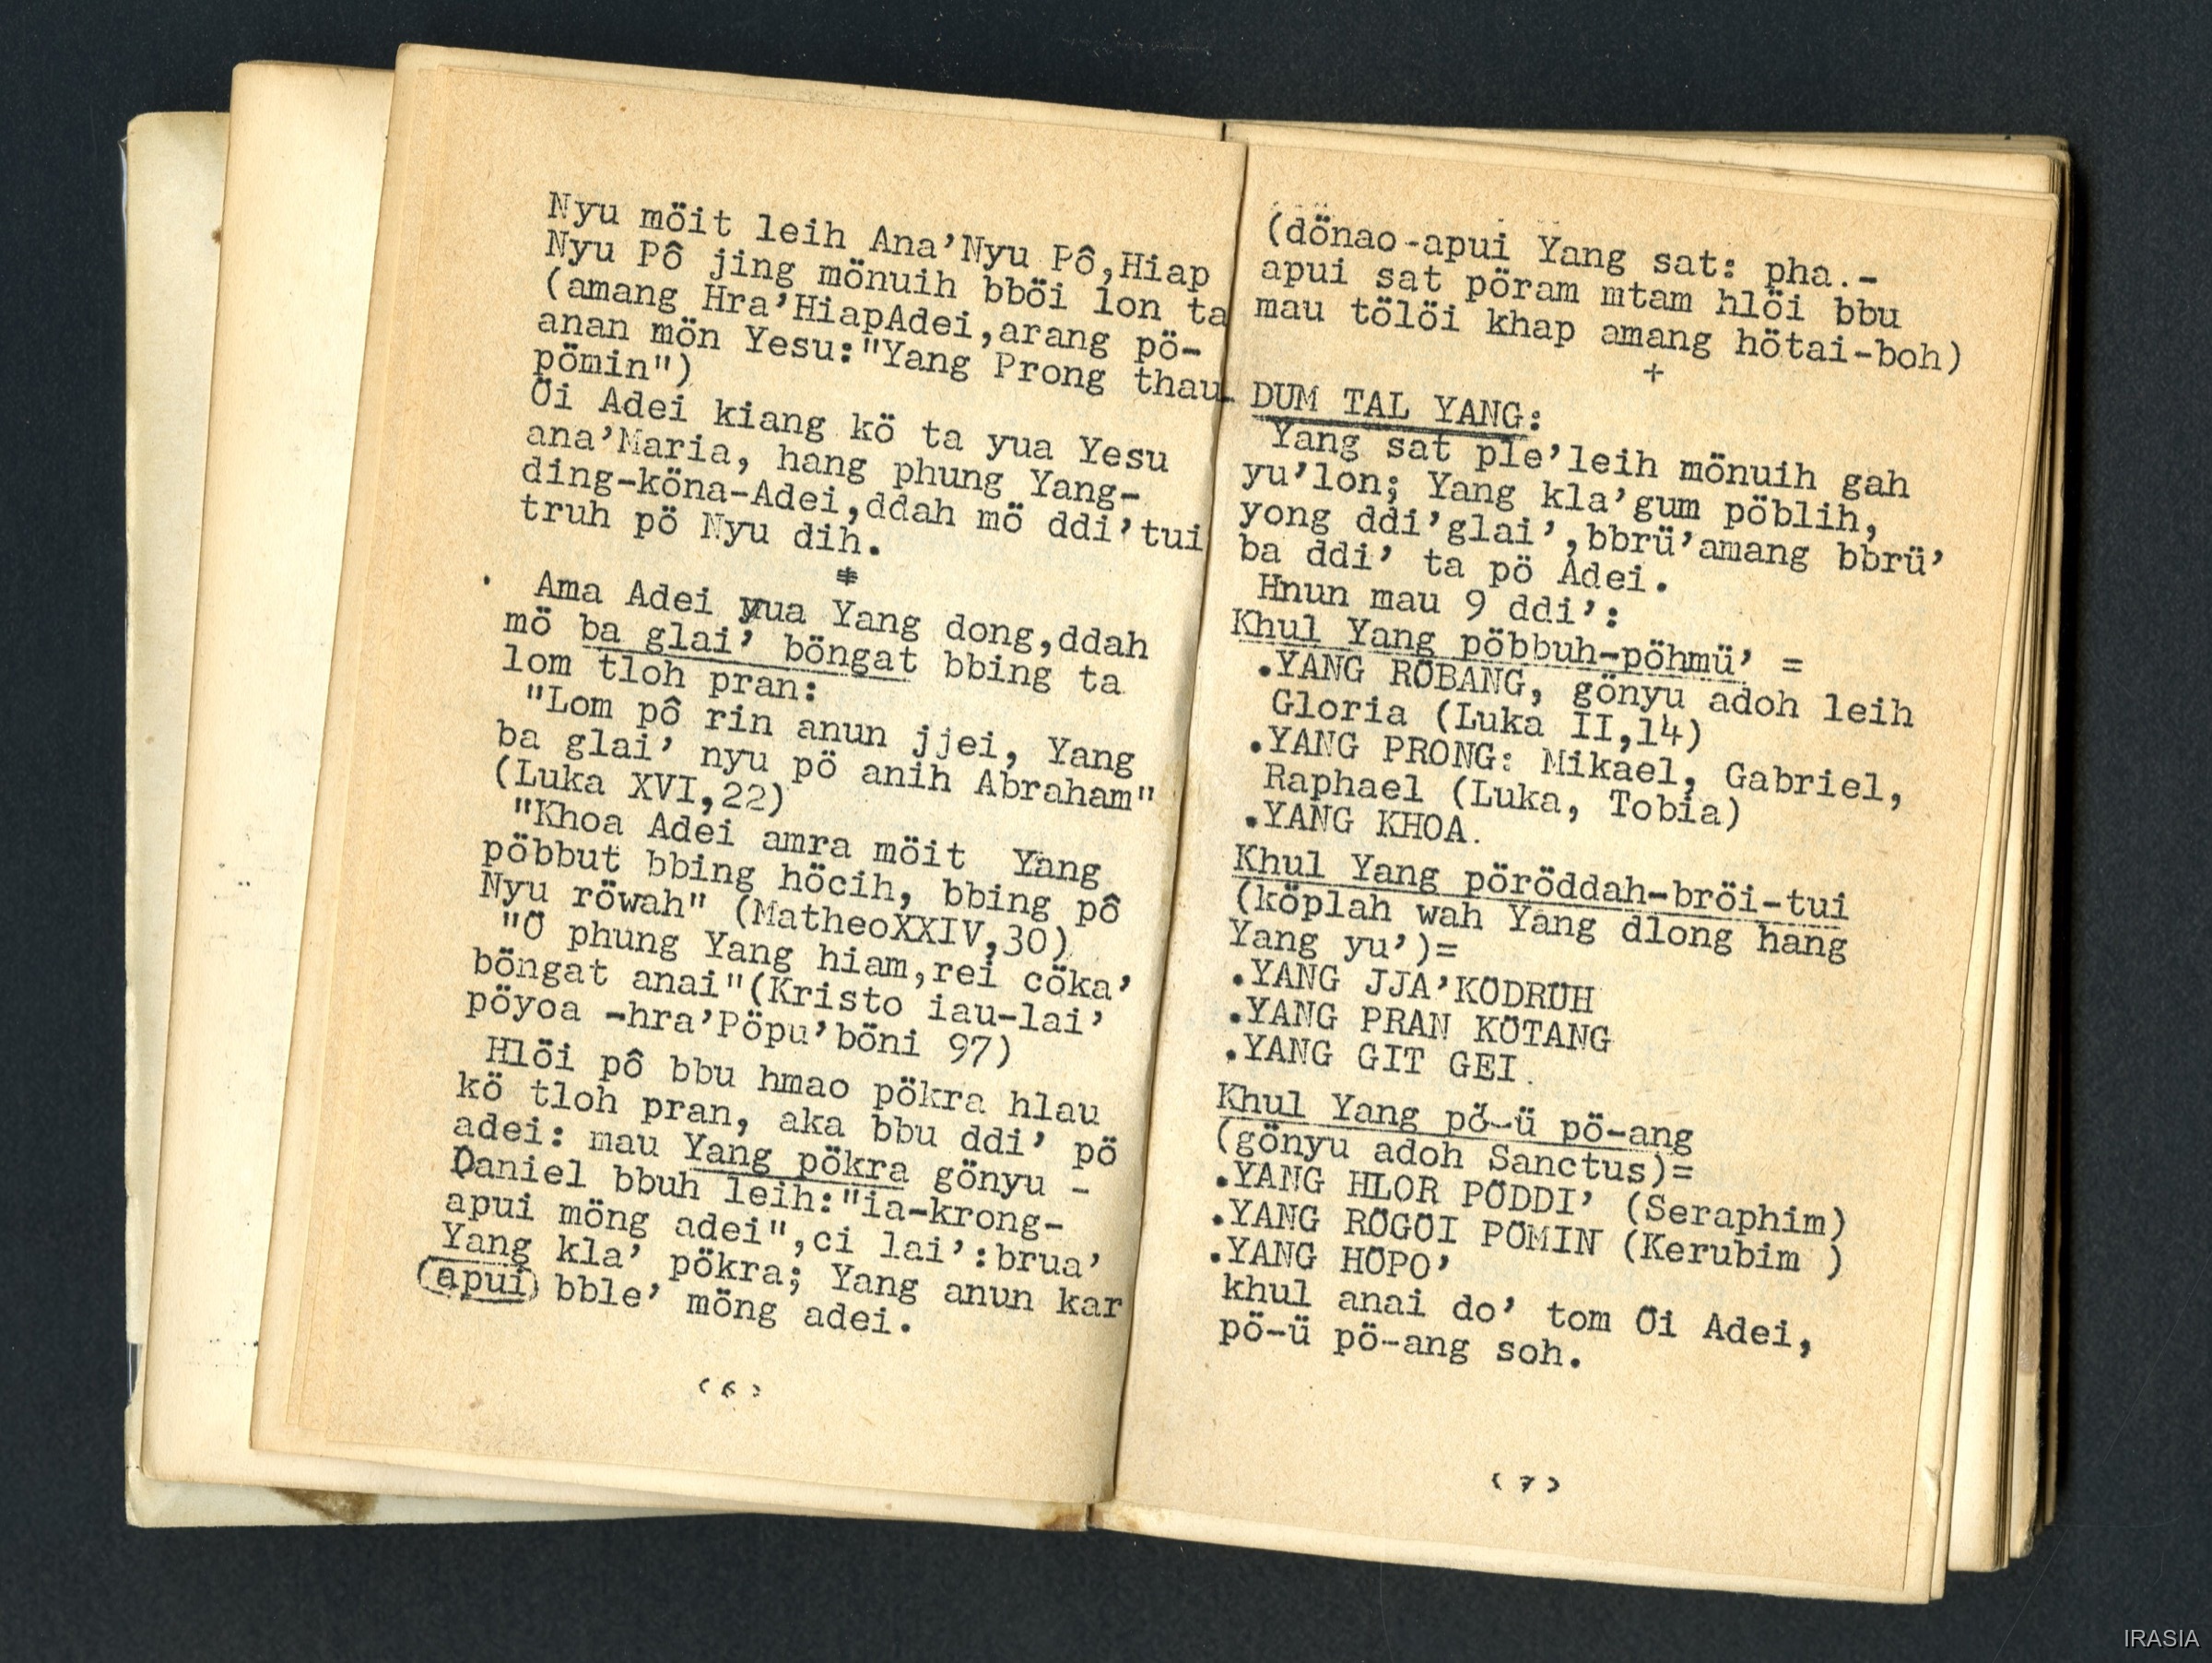 Nyu möit leih Ana'Nyu Pô,Hiap
Nyu Pô jing mönuih bböi lon ta
(amang Hra'HiapAdei,arang pö-
anan mön Yesu:"Yang Prong thau-
pömin")
Öi Adei kiang kö ta yua Yesu
ana'Maria, hang phung Yang-
ding-köna-Adei,ddah mö ddi'tui
truh pö Nyu dih.
Ama Adei yua Yang dong,ddah
mö ba glai' böngat bbing ta
lom tloh pran:
"Lom pô rin anun jjei, Yang
ba glai' nyu pö anih Abraham"
(Luka XVI,22)
"Khoa Adei amra möit Yang
pöbbut bbing höcih, bbing pô
Nyu röwah" (MatheoXXIV,30)
"Ö phung Yang hiam,rei cöka'
böngat anai"(Kristo iau-lai'
pöyoa -hra'Pöpu'böni 97)
Hlöi pô bbu hmao pökra hlau
kö tloh pran, aka bbu ddi' pö
adei: mau Yang pökra gönyu -
Daniel bbuh leih:"ia-krong-
apui möng adei",ci lai':brua'
Yang kla' pökra; Yang anun kar
(apui) bble' möng adei.
(6)
(dönao-apui Yang sat: pha.-
apui sat pöram mtam hlöi bbu
mau tölöi khap amang hötai-boh)
+
DUM TAL YANG:
Yang sat ple'leih mönuih gah
yu'lon; Yang kla'gum pöblih,
yong ddi'glai',bbrü'amang bbrü'
ba ddi' ta pö Adei.
Hnun mau 9 ddi':
Khul Yang pöbbuh-pöhmü' =
.YANG RÖBANG, gönyu adoh leih
Gloria (Luka II,14)
.YANG PRONG: Mikael, Gabriel,
Raphael (Luka, Tobia)
.YANG KHOA.
Khul Yang pöröddah-bröi-tui
(köplah wah Yang dlong hang
Yang yu')=
.YANG JJA'KÖDRÜH
.YANG PRAN KÖTANG
.YANG GIT GEI.
Khul Yang pö-ü pö-ang
(gönyu adoh Sanctus)=
.YANG HLOR PÖDDI' (Seraphim)
.YANG RÖGÖI PÖMIN (Kerubim )
.YANG HÖPO'
khul anai do' tom Öi Adei,
pö-ü pö-ang soh.
(7)
IRASIA